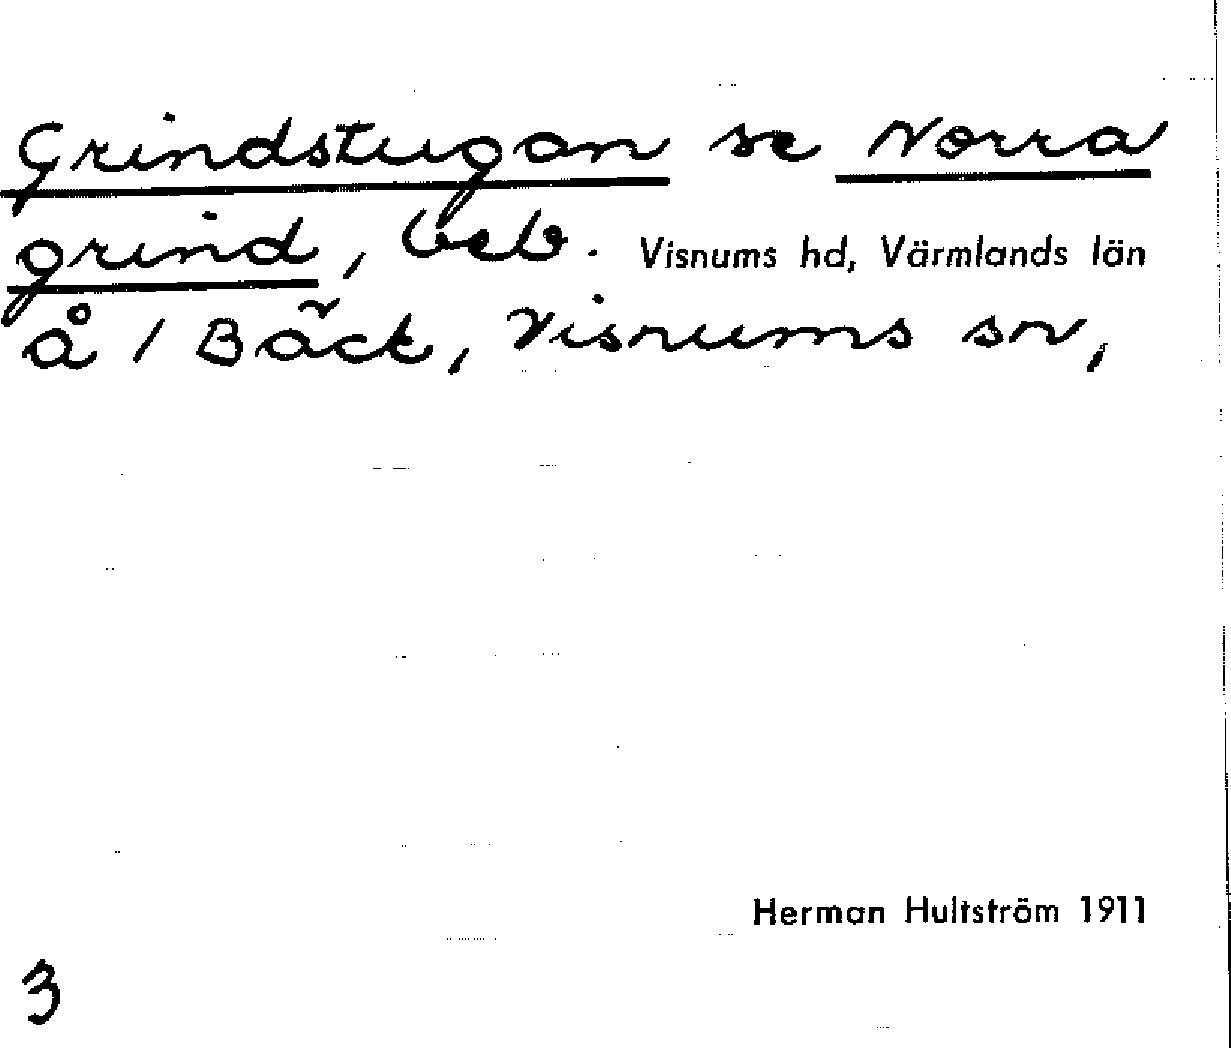 Grindstugan se Norra
grind, beb. Visnums hd, Värmlands län
å / Bäck, Visnums sn,
Herman Hultström 1911
3